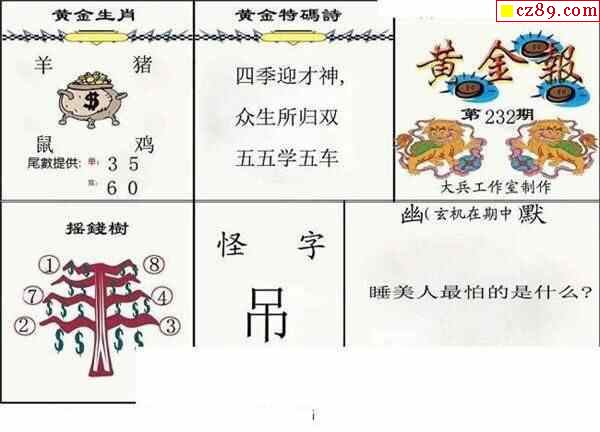 cz89.com
黄金生肖
羊 猪
$
鼠 鸡
尾數提供: 单: 3 5
双: 6 0
黄金特碼詩
四季迎才神,
众生所归双
五五学五车
黄金報
第232期
大兵工作室制作
摇錢樹
① ⑧
⑦ ④
② ③
$ $ $ $ $ $ $ $
怪 字
吊
幽(玄机在期中)默
睡美人最怕的是什么?
i